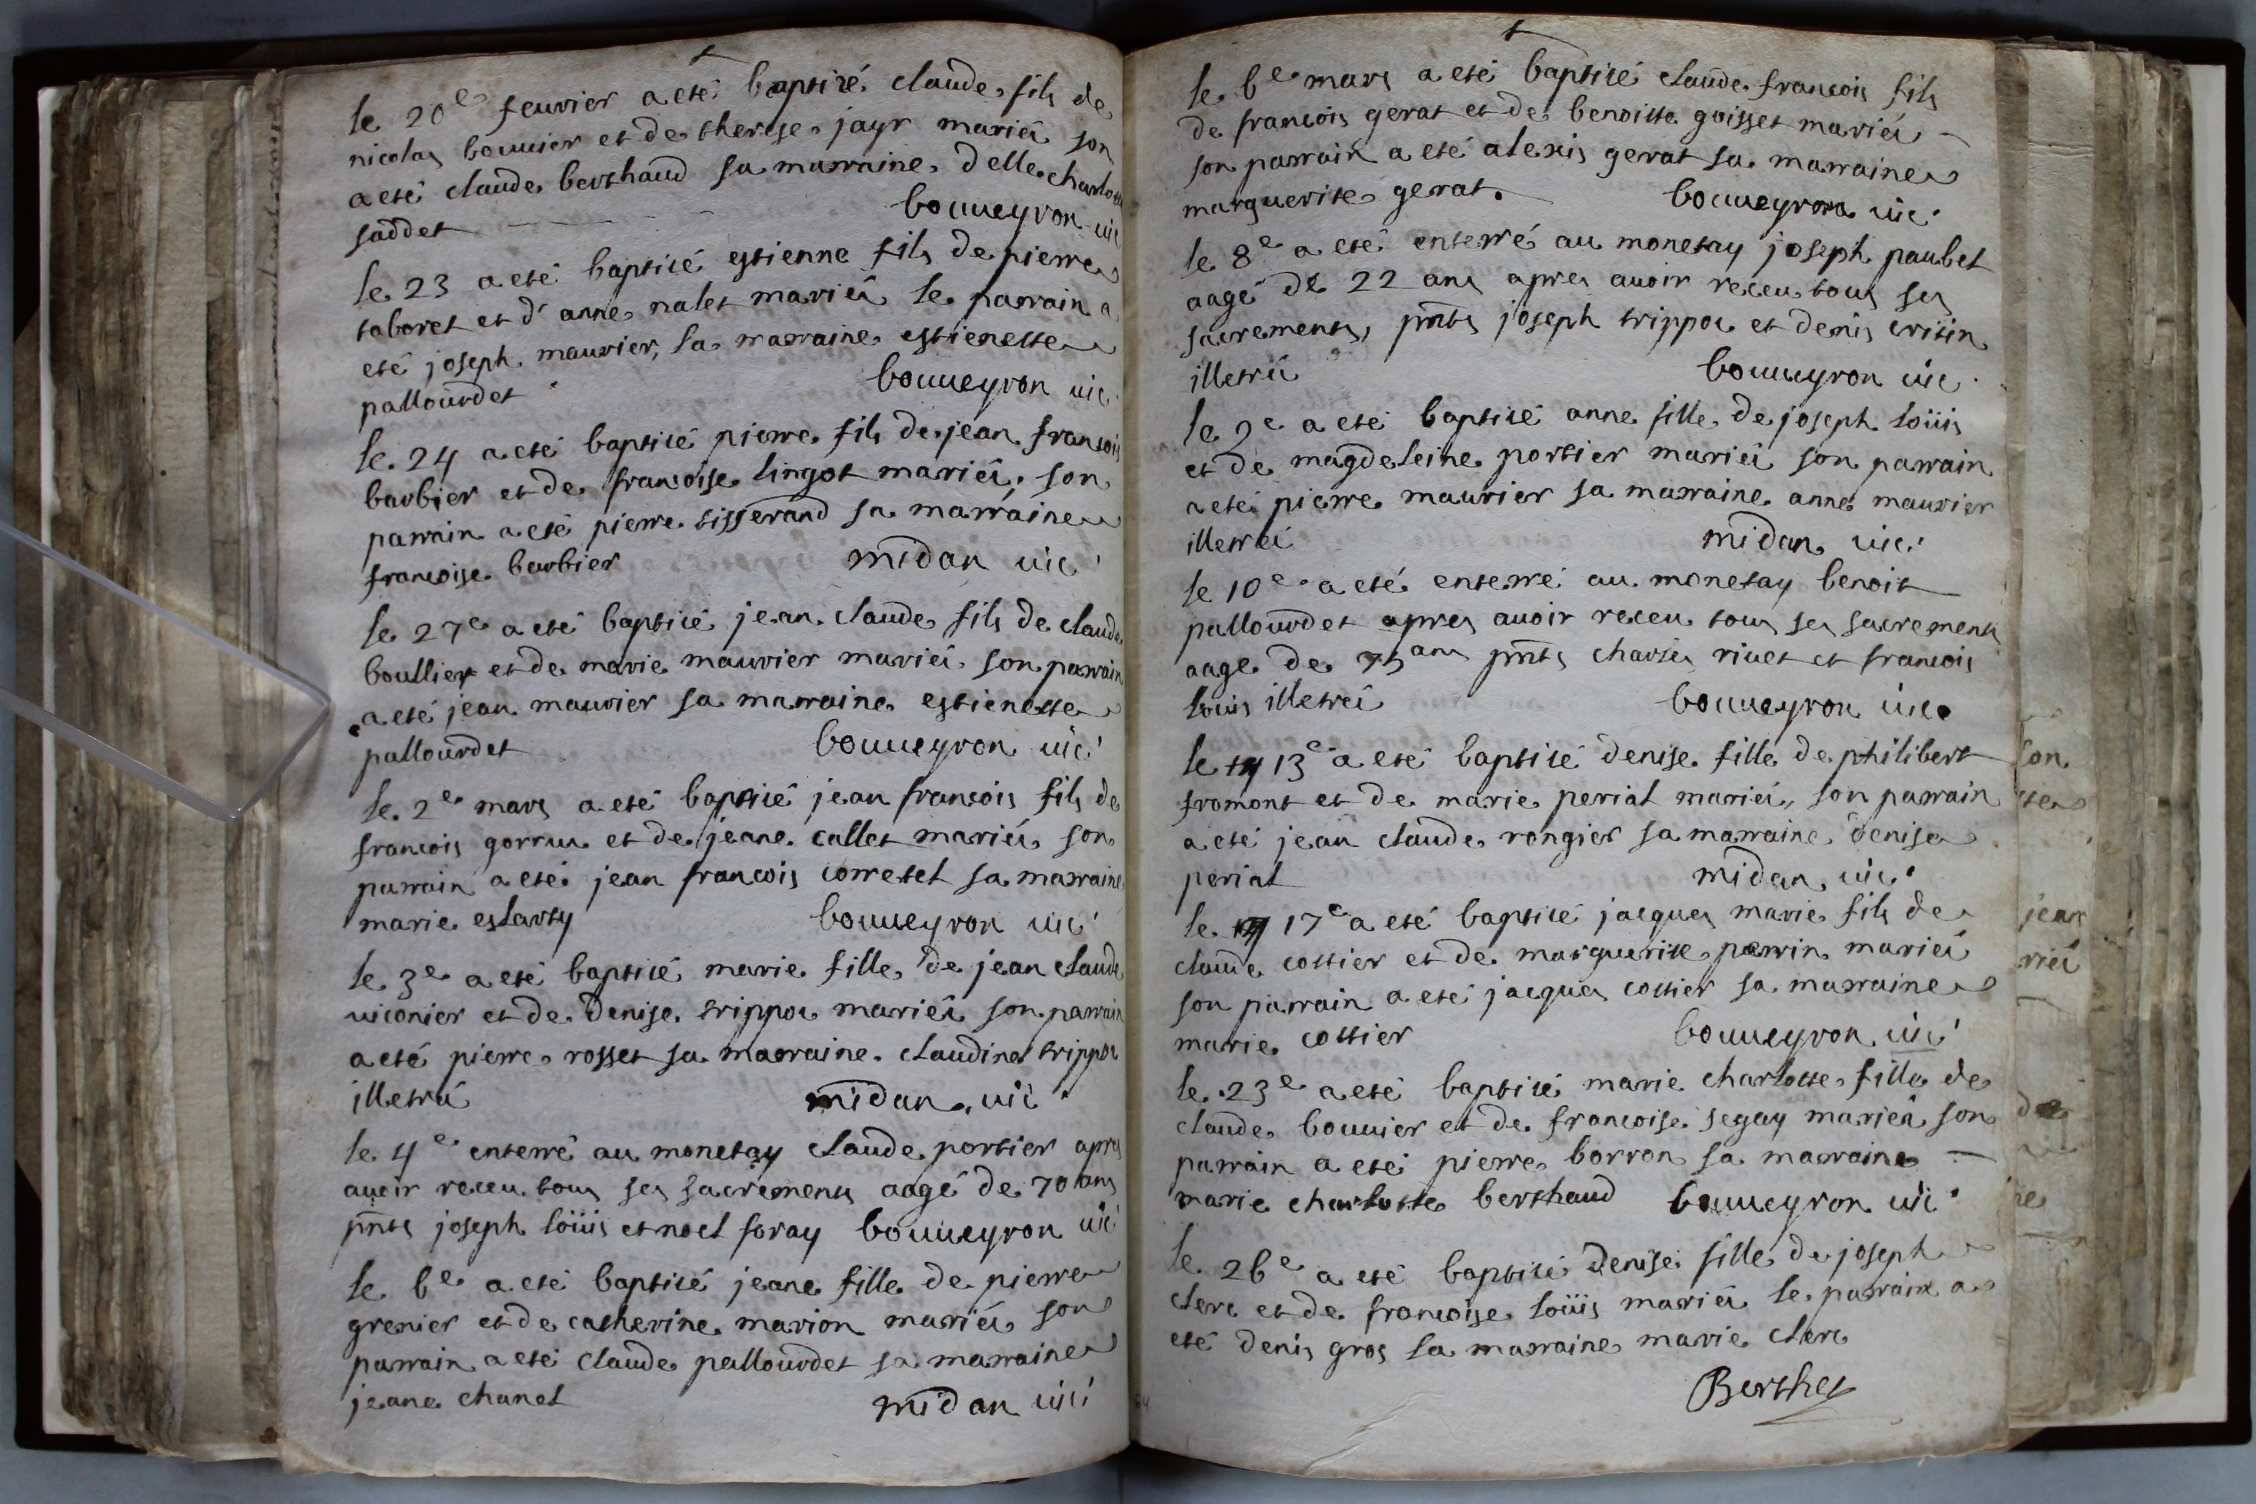 le 20e feuvrier a eté baptizé claude fils de
nicolas bouuier et de therese jayr mariés son
a eté claude berthaud sa marraine delle charlotte
saddet
bouueyron vic
le 23 a eté baptisé estienne fils de pierre
taboret et d'anne nalet mariés le parrain a
eté joseph maurier, la marraine estienette
pallourdet
bouueyron vic
le 24 a eté baptisé pierre fils de jean francois
barbier et de francoise lingot mariés son
parrain a eté pierre tisserand sa marraine
francoise barbier midan vic
le 27e a eté baptisé jean claude fils de claude
boullier et de marie maurier mariés son parrain
a eté jean maurier sa marraine estienette
pallourdet bouueyron vic
le 2e mars a eté baptisé jean francois fils de
francois gorraz et de jeane callet mariés son
parrain a eté jean francois corretel sa marraine
marie eslarty bouueyron vic
le 3e a eté baptisé marie fille de jean claude
viconier et de denise trippoz mariés son parrain
a eté pierre rosset sa marraine claudine trippoz
illetrés midan vic
le 4e enterré au monetay claude portier apres
avoir receu tous ses sacrements aagé de 70 ans
pnts joseph loüis et noel foray bouueyron vic
le 6e a eté baptisé jeane fille de pierre
grenier et de catherine marion mariés son
parrain a eté claude pallourdet sa marraine
jeane chanel midan vic
le 6e mars a eté baptisé claude francois fils
de francois gerat et de benoitte goisset mariés
son parrain a eté alexis gerat sa marraine
marguerite gerat. bouueyron vic
le 8e a eté enterré au monetay joseph paubel
aagé de 22 ans apres auoir receu tous ses
sacrements, pnts joseph trippoz et denis crisin
illetrés bouueyron vic
le 9e a eté baptisé anne fille de joseph loüis
et de magdeleine portier mariés son parrain
a eté pierre maurier sa marraine anne maurier
illetrés midan vic
le 10e a eté enterré au monetay benoit
pallourdet apres auoir receu tous ses sacrements
aagé de 75 ans pnts charles riuet et francois
louis illetrés bouueyron vic
le 13e a eté baptisé denise fille de philibert
fromont et de marie perial mariés, son parrain
a eté jean claude rongier sa marraine denise
perial midan vic
le 17e a eté baptisé jacques marie fils de
claude cottier et de marguerite perrin mariés
son parrain a eté jacques cottier sa marraine
marie cottier bouueyron vic
le 23e a eté baptisé marie charlotte fille de
claude bouuier et de francoise segay mariés son
parrain a eté pierre borron sa marraine
marie charlotte berthaud bouueyron vic
le 26e a eté baptisé denise fille de joseph
clerc et de francoise loüis mariés le parrain a
eté denis gros la marraine marie clerc
Berthet
son
jean
riés
de